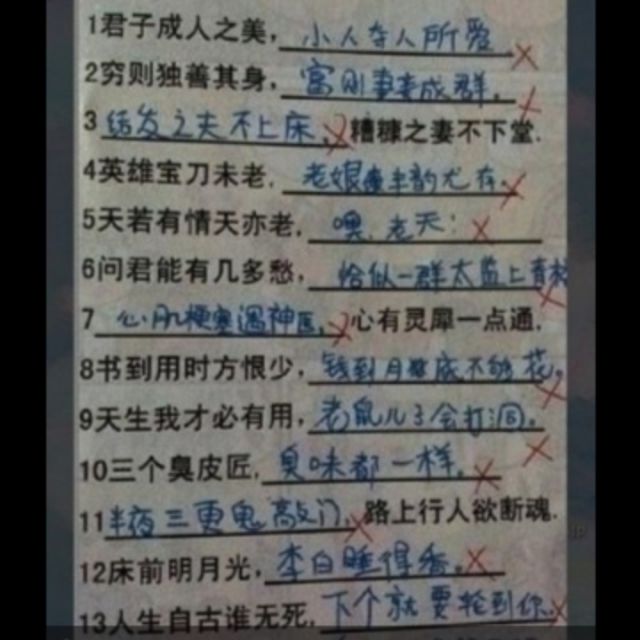 1君子成人之美，小人夺人所爱
2穷则独善其身，富则妻妾成群。
3结发之夫不上床，糟糠之妻不下堂.
4英雄宝刀未老，老娘半韵尤存。
5天若有情天亦老，噢，老天！
6问君能有几多愁，恰似一群太监上青
7心肌梗塞遇神医，心有灵犀一点通.
8书到用时方恨少，钱到月底不够花。
9天生我才必有用，老鼠儿子会打洞。
10三个臭皮匠，臭味都一样。
11半夜三更鬼敲门，路上行人欲断魂.
12床前明月光，李白睡得香。
13人生自古谁无死，下个就要轮到你。